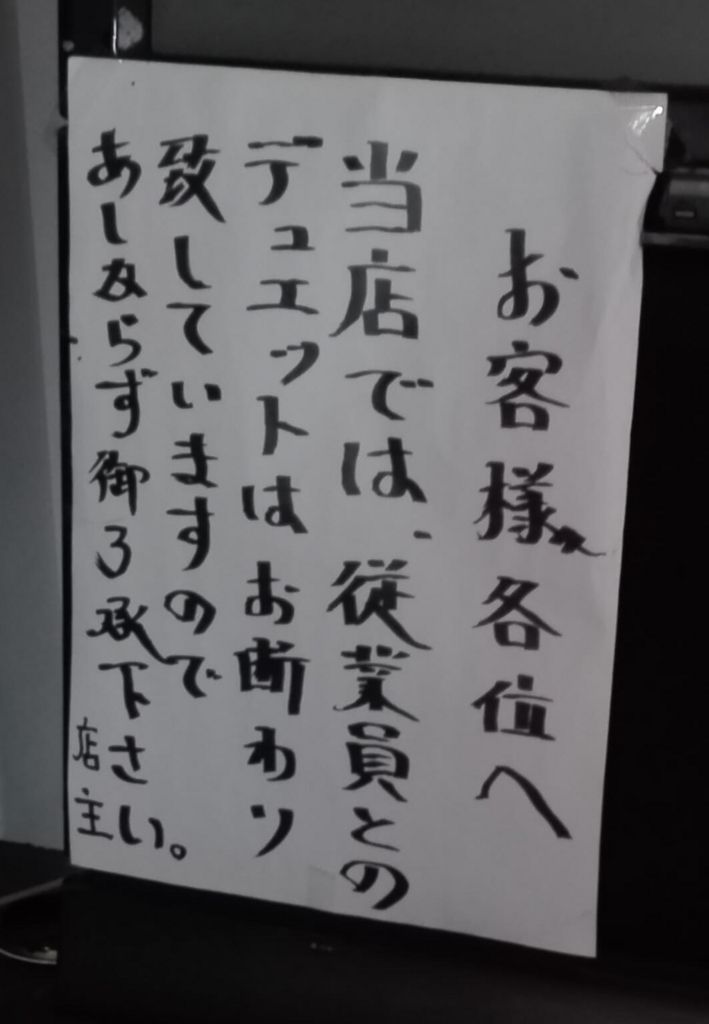 お客様各位へ
当店では、従業員との
デュエットはお断わり
致していますので
あしならず御了承下さい。
店主